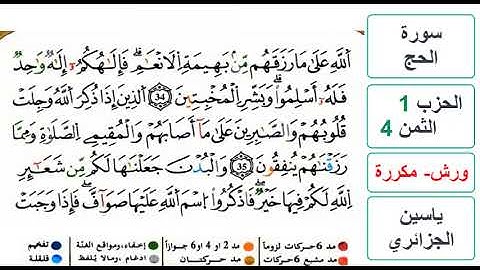 اللَّهِ عَلَىٰ مَا رَزَقَهُم مِّنۢ بَهِيمَةِ الْأَنْعَٰمِ فَإِلَٰهُكُمْ إِلَٰهٌ وَٰحِدٌ
فَلَهُۥ أَسْلِمُوا وَبَشِّرِ الْمُخْبِتِينَ 34 الَّذِينَ إِذَا ذُكِرَ اللَّهُ وَجِلَتْ
قُلُوبُهُمْ وَالصَّٰبِرِينَ عَلَىٰ مَا أَصَابَهُمْ وَالْمُقِيمِي الصَّلَوٰةِ وَمِمَّا
رَزَقْنَٰهُمْ يُنفِقُونَ 35 وَالْبُدْنَ جَعَلْنَٰهَا لَكُم مِّن شَعَٰٓئِرِ
اللَّهِ لَكُمْ فِيهَا خَيْرٌ فَاذْكُرُوا اسْمَ اللَّهِ عَلَيْهَا صَوَآفَّ فَإِذَا وَجَبَتْ
مد 6 حركات لزوماً
مد 2 أو 4 أو 6 جوازاً
إخفاء، ومواقع الغنة
تفخيم
مد مشبع 6 حركات
مد حركتان
ادغام، وما لا يلفظ
قلقلة
سورة
الحج
الحزب 1
الثمن 4
ورش- مكررة
ياسين
الجزائري